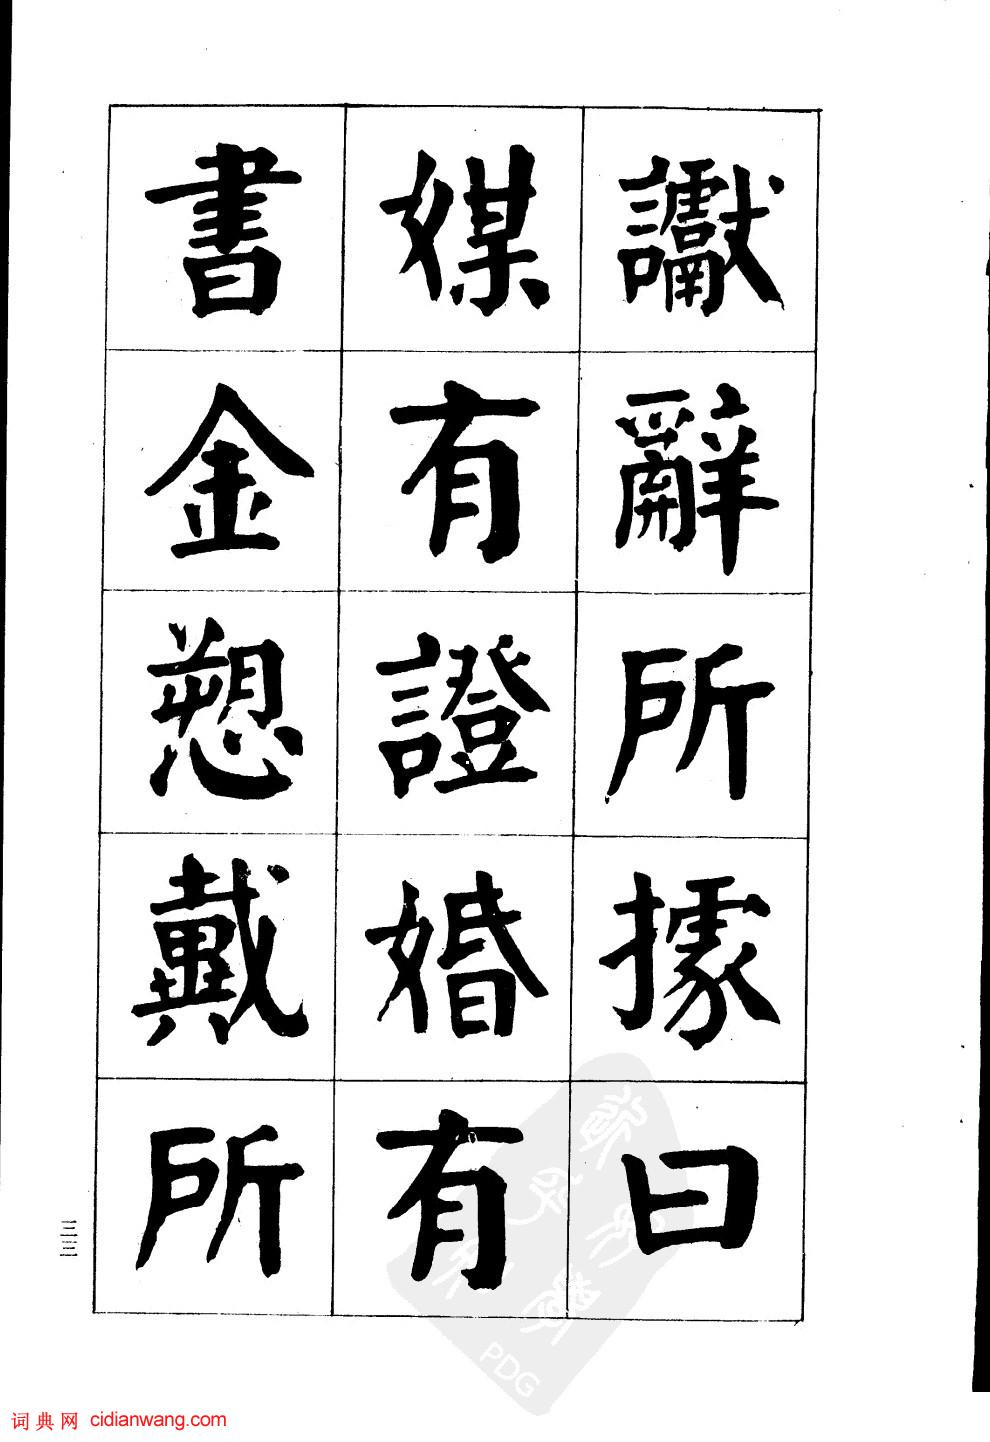 讞辭所據曰
媒有證婚有
書金愬戴所
三三
词典网 cidianwang.com
PDG